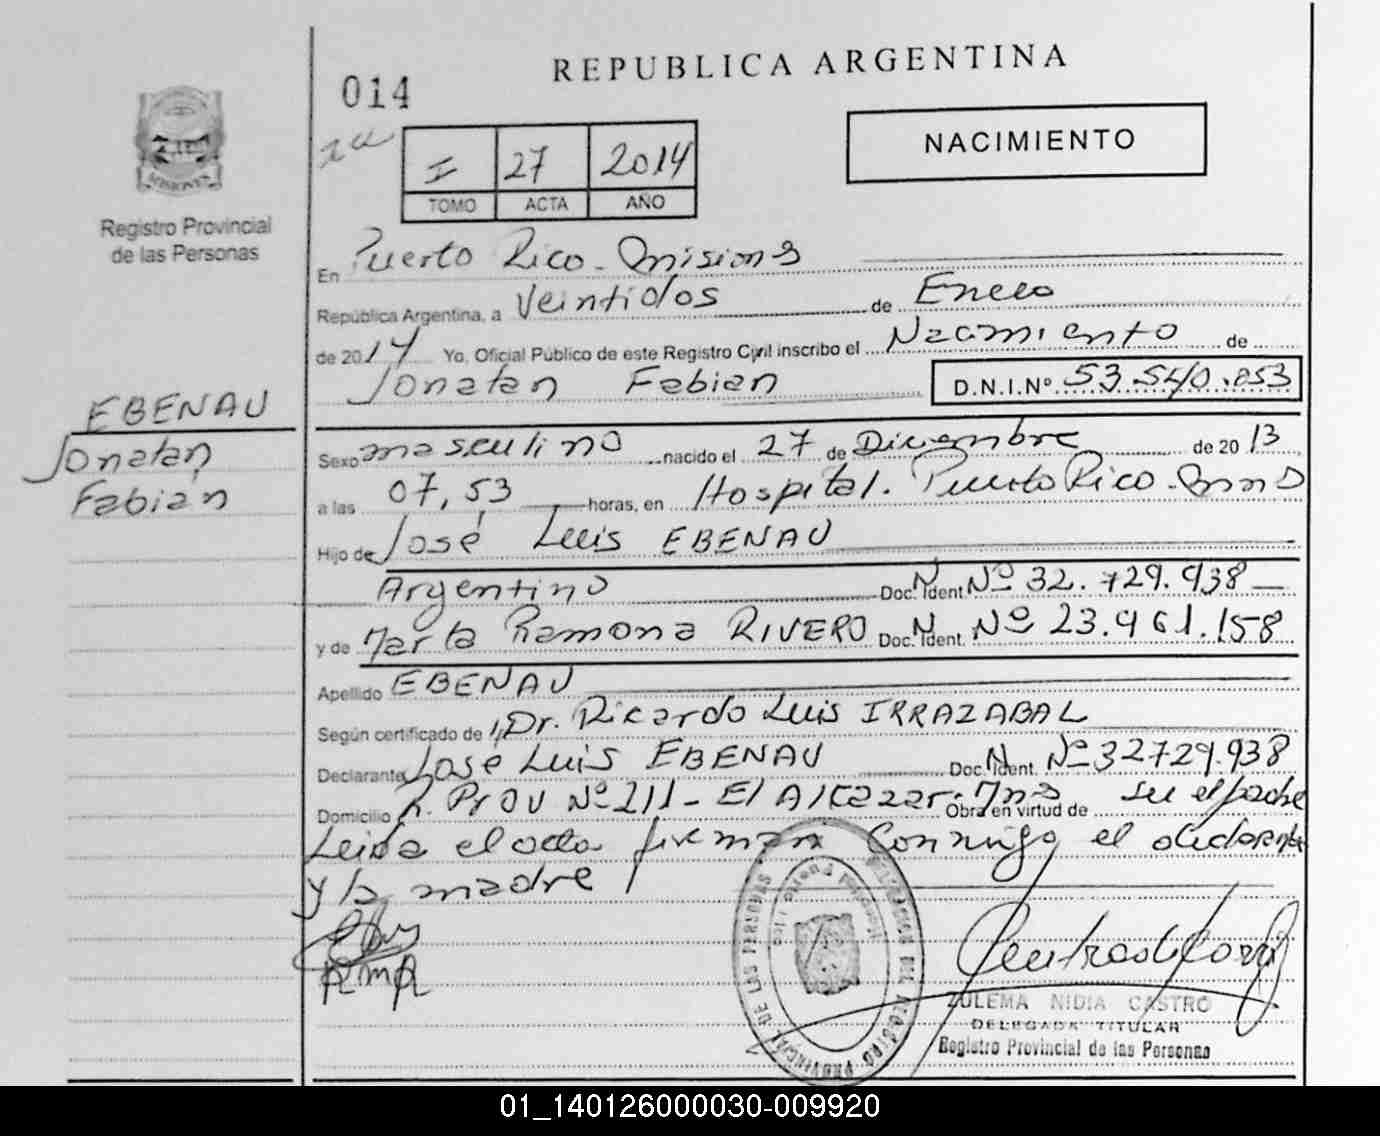 REPUBLICA ARGENTINA
014
NACIMIENTO
I 27 2014
TOMO ACTA AÑO
MISIONES
Registro Provincial
de las Personas
En Puerto Rico - Misiones
República Argentina, a Veintidos de Enero
de 2014 Yo, Oficial Público de este Registro Civil inscribo el Nacimiento de
Jonatan Fabian D.N.I.Nº 53.540.853
EBENAU
Jonatan
Fabian
Sexo masculino nacido el 27 de Diciembre de 2013
a las 07,53 horas, en Hospital. Puerto Rico - Mnes
Hijo de José Luis EBENAU
Argentino Doc. Ident. Nº 32.729.938
y de Marta Ramona RIVERO Doc. Ident. Nº 23.961.158
Apellido EBENAU
Según certificado de Dr. Ricardo Luis IRRAZABAL
Declarante José Luis EBENAU Doc. Ident. Nº 32729.938
Domicilio R. Prov Nº 211 - El Alcazar - Mns Obra en virtud de ser el padre
Leida el acta firman conmigo el declarante
y la madre
RMR
DELEGACION DEL REGISTRO PROVINCIAL DE LAS PERSONAS
ZULEMA NIDIA CASTRO
DELEGADA TITULAR
Registro Provincial de las Personas
01_140126000030-009920